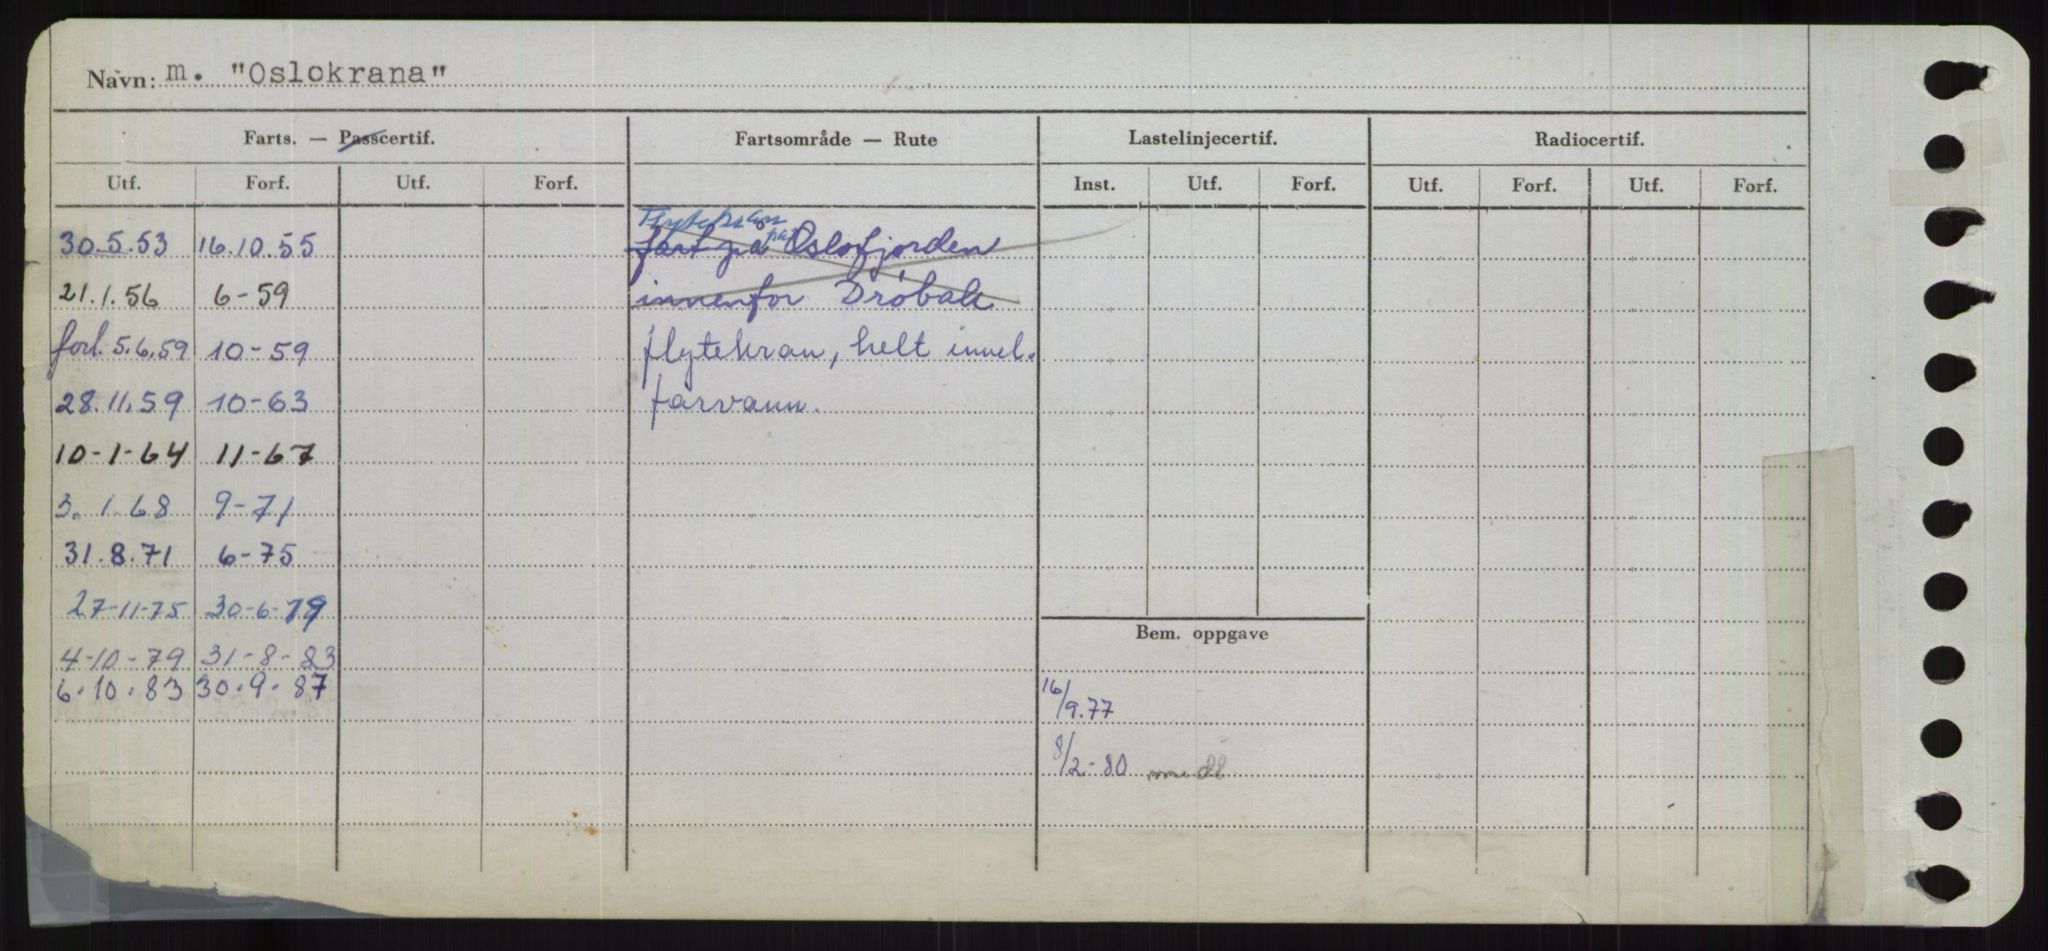 Navn: m. "Oslokrana"
Farts. — Passcertif. Fartsområde — Rute Lastelinjecertif. Radiocertif.
Utf. Forf. Utf. Forf. Inst. Utf. Forf. Utf. Forf. Utf. Forf.
Flytekran
30.5.53 16.10.55 fart på Oslofjorden
21.1.56 6-59 innenfor Drøbak
forl. 5.6.59 10-59 flytekran, helt innel.
28.11.59 10-63 farvann.
10-1-64 11-67
3.1.68 9-71
31.8.71 6-75
27-11-75 30-6-79
Bem. oppgave
4-10-79 31-8-83
6.10.83 30.9.87 16/9.77
8/2-80